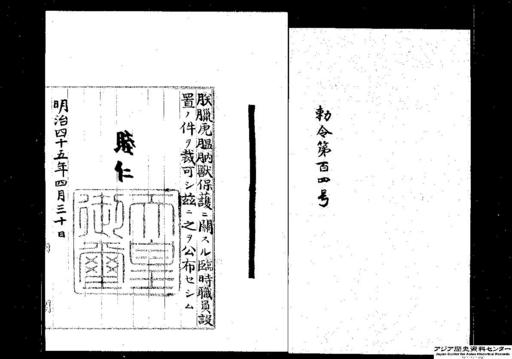 勅令第百四号
朕臘虎膃肭獣保護ニ関スル臨時職員設
置ノ件ヲ裁可シ茲ニ之ヲ公布セシム
睦仁
天皇御璽
明治四十五年四月三十日
アジア歴史資料センター
Japan Center for Asian Historical Records